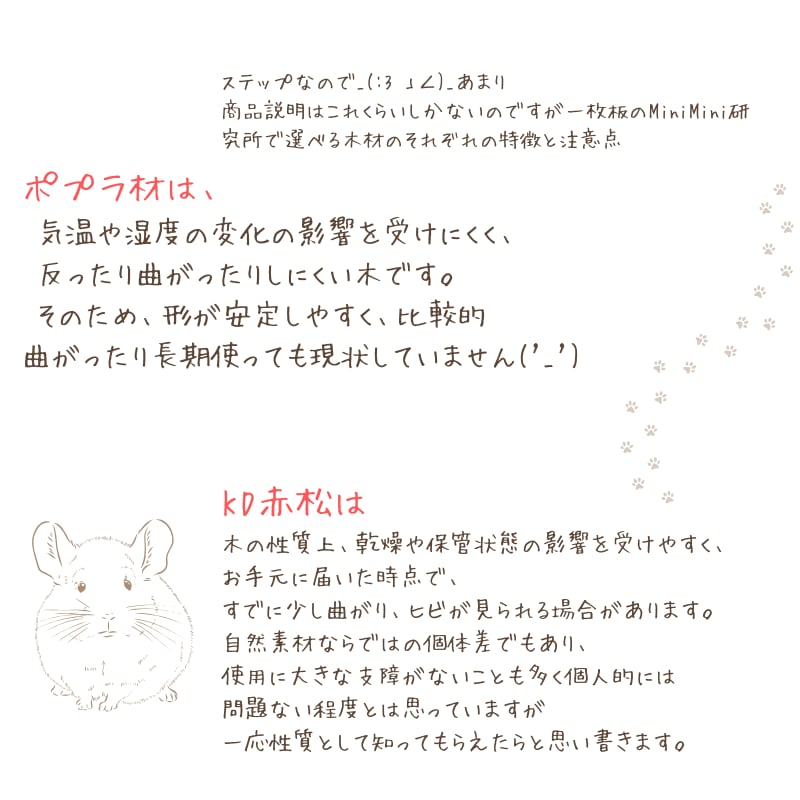 ステップなので_(:3 」∠)_あまり
商品説明はこれくらいしかないのですが一枚板のMiniMini研
究所で選べる木材のそれぞれの特徴と注意点
ポプラ材は、
気温や湿度の変化の影響を受けにくく、
反ったり曲がったりしにくい木です。
そのため、形が安定しやすく、比較的
曲がったり長期使っても現状していません(’_’)
KD赤松は
木の性質上、乾燥や保管状態の影響を受けやすく、
お手元に届いた時点で、
すでに少し曲がり、ヒビが見られる場合があります。
自然素材ならではの個体差でもあり、
使用に大きな支障がないことも多く個人的には
問題ない程度とは思っていますが
一応性質として知ってもらえたらと思い書きます。